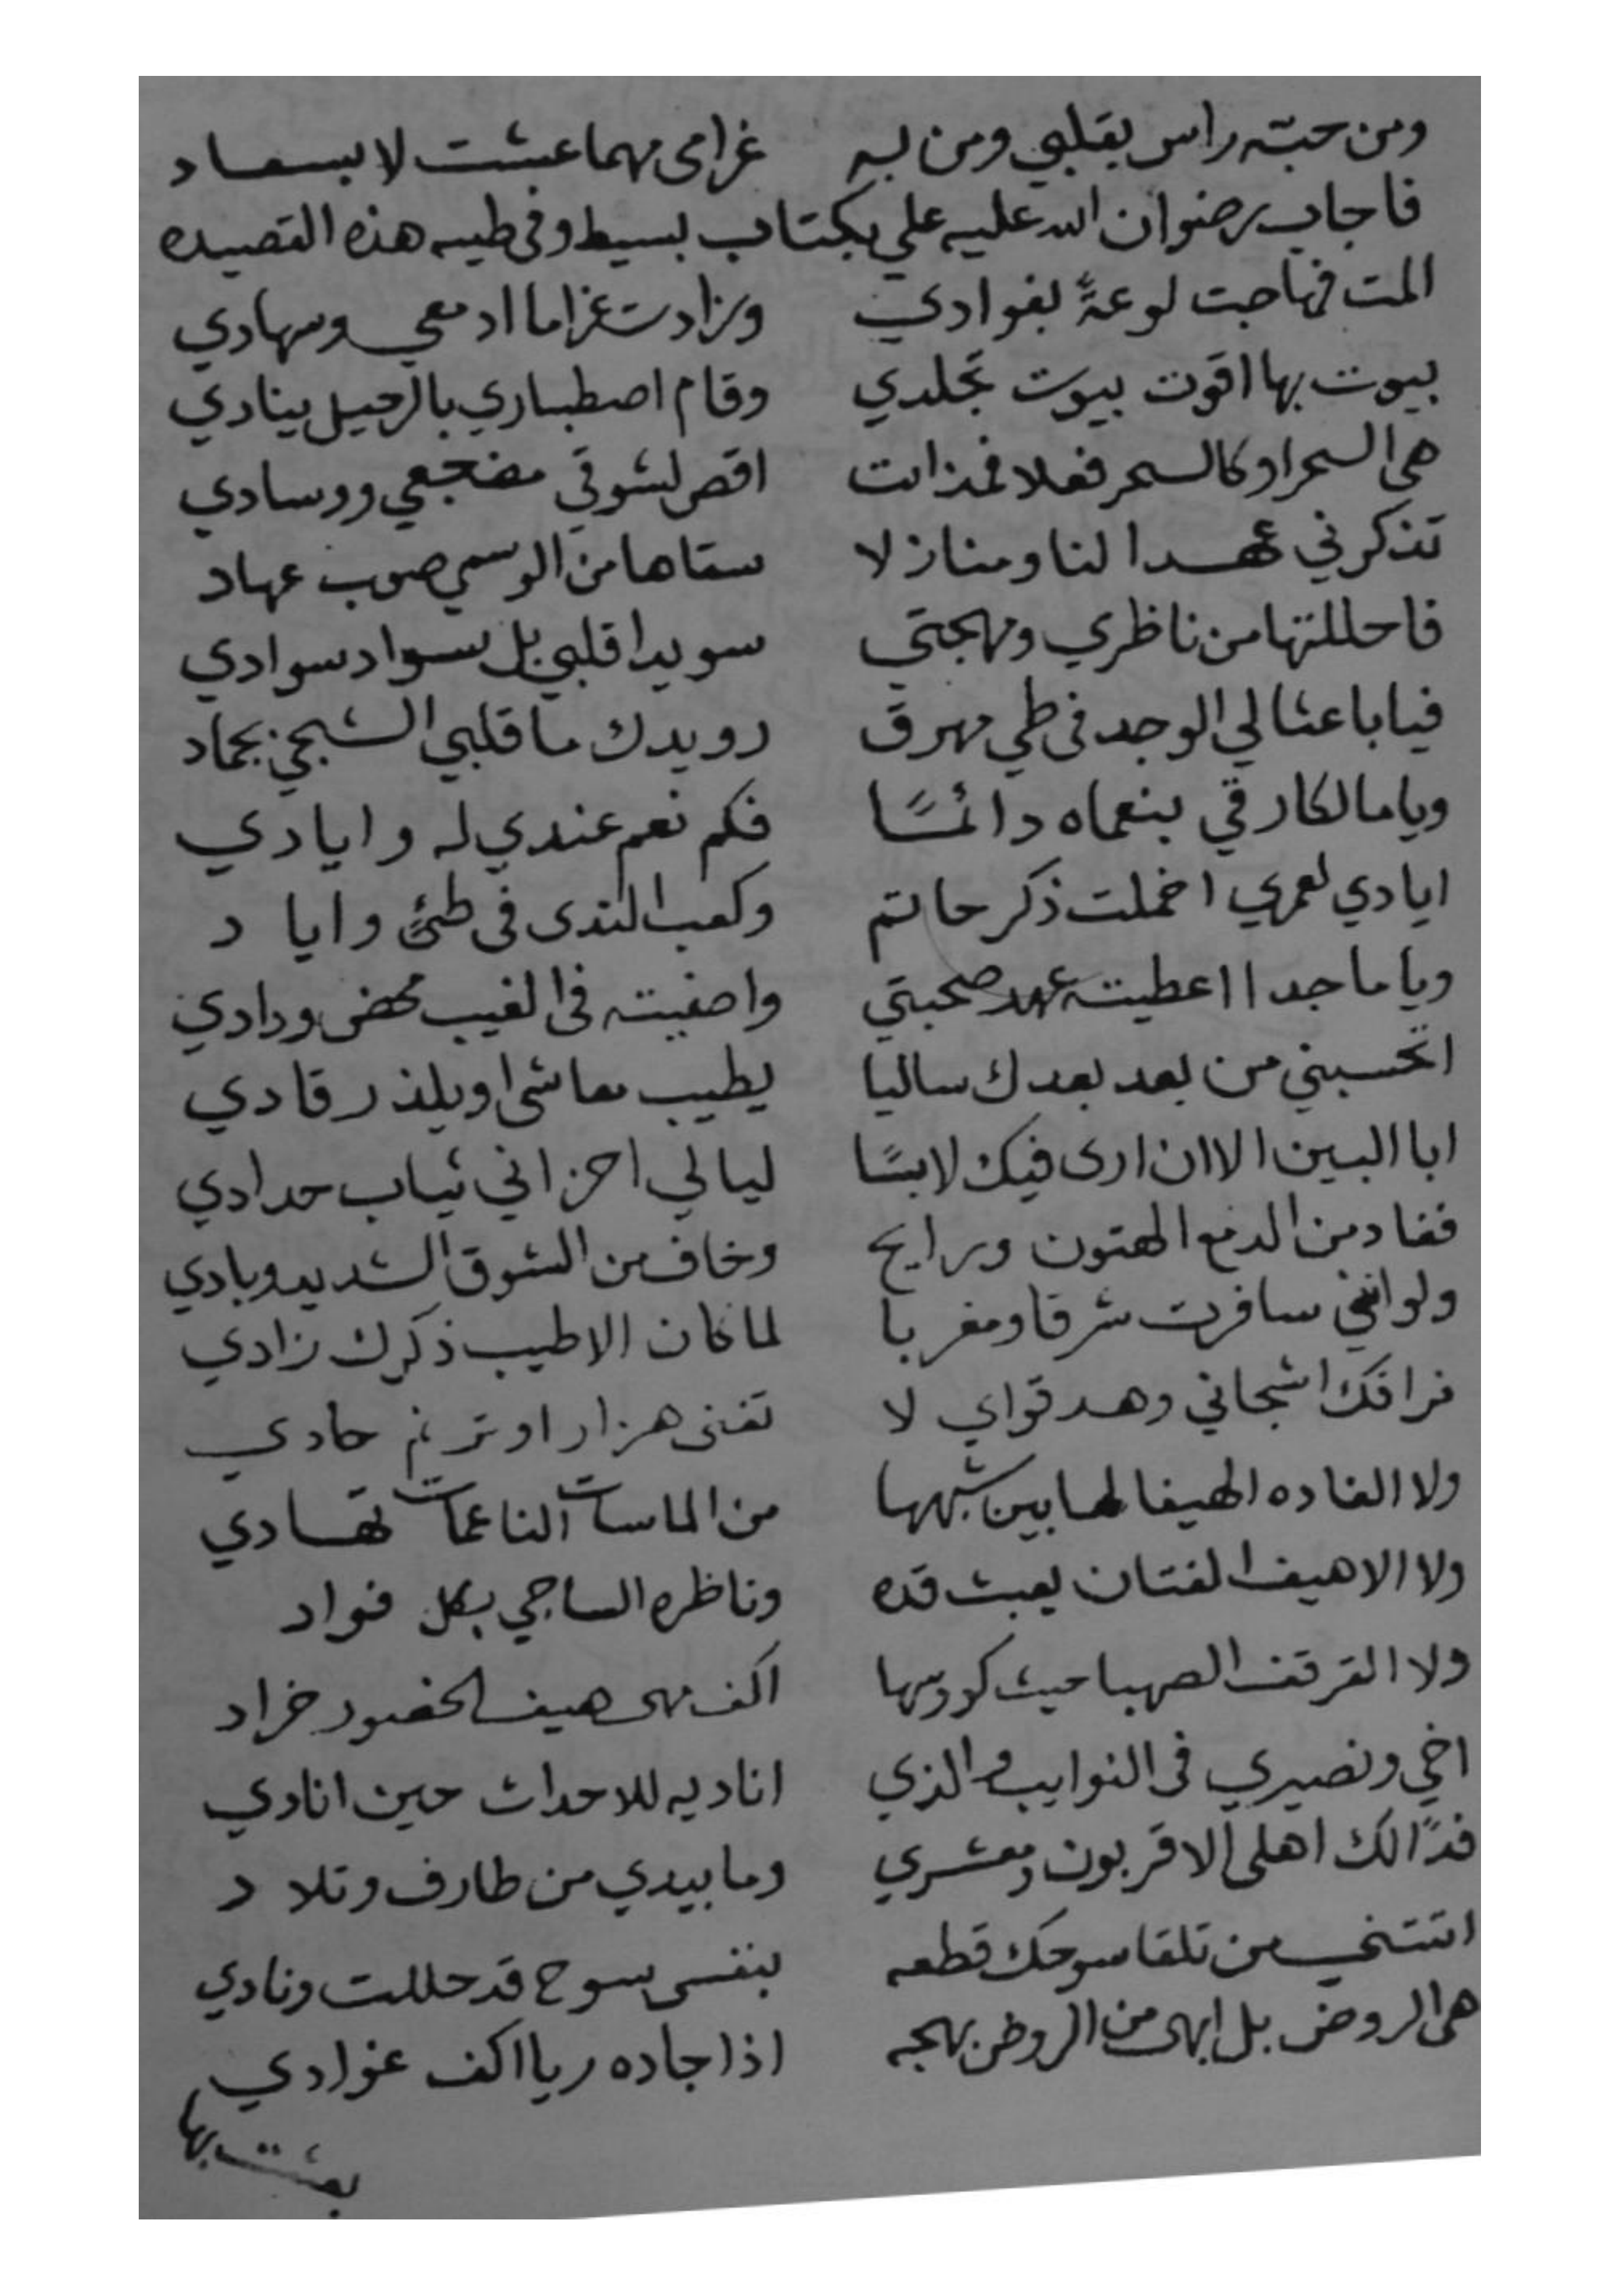 ومن حبه راس بقلبي ومن به غرامى مهما عشت لا بسعاد
فاجاب رضوان الله عليه علي بكتاب بسيط وفى طيه هذه القصيده
المت فهاجت لوعةً بفوادي وزادت غراما ادمعي وسهادي
بيوت بها اقوت بيوت تجلدي وقام اصطباري بالرحيل ينادي
هى السحر او كالسحر فعلا فمذ اتت اقض لشوقي مضجعي ووسادي
تذكرني عهدا لنا ومنازلا سقاها من الوسمي صوب عهاد
فاحللتها من ناظري ومهجتي سويدا قلبي بل سواد سوادي
فيا باعثا لي الوجد فى طي مهرق رويدك ما قلبي الشجي بجماد
ويا مالكا رقي بنعماه دائمًا فكم نعم عندي له وايادي
ايادي لعمري اخملت ذكر حاتم وكعب الندى فى طئ واياد
ويا ماجدا اعطيته عهد صحبتي واصفيته فى الغيب محض ودادي
اتحسبني من بعد بعدك ساليا يطيب معاشى او يلذ رقادي
ابا البين الا ان ارى فيك لابسًا ليالي احزاني ثياب حدادي
فغاد من الدمع الهتون ورايح وخاف من الشوق الشديد وبادي
ولو انني سافرت شرقا ومغربا لما كان الا طيب ذكرك زادي
فراقك اشجاني وهد قواي لا تغنى هزار او ترنم حادي
ولا الغاده الهيفا لها بين شبهها من المايسات الناعمات تهادي
ولا الاهيف الفتان يعبث قده وناظره الساجي بكل فواد
ولا القرقف الصهبا حيث كووسها اكف مهى هيف الخصور خراد
اخي ونصيري فى النوايب والذي اناديه للاحداث حين انادي
فدًا لك اهلى الاقربون ومعشري وما بيدي من طارف وتلاد
اتتني من تلقا سوحك قطعه بنفسى سوح قد حللت ونادي
هى الروض بل ابهى من الروض بهجه اذا جاده ريا اكف غوادي
بعثت بها